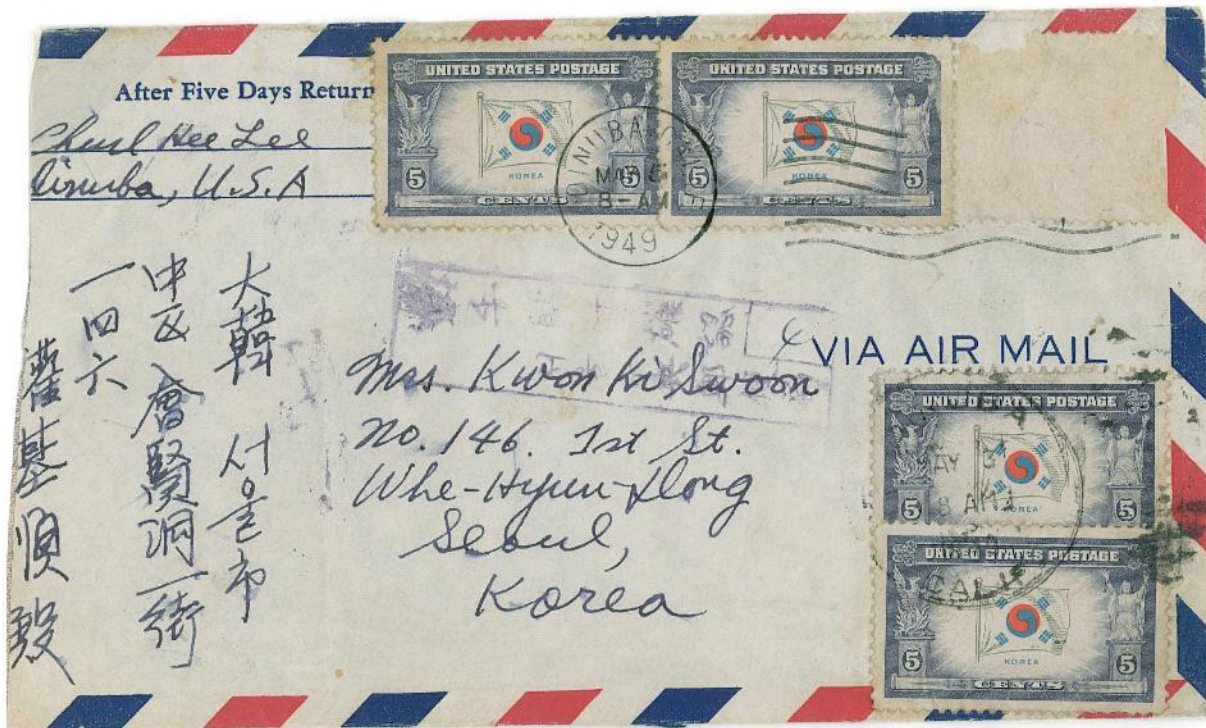 After Five Days Return
Chul Hee Lee
Dinuba, U.S.A
UNITED STATES POSTAGE
KOREA
5 5
CENTS
UNITED STATES POSTAGE
KOREA
5 5
CENTS
DINUBA, CALIF.
MAY 5
8-AM
1949
大韓 서울市
中区 會賢洞一街
一四六
權基順 殿
VIA AIR MAIL
Mrs. Kwon Ki Swoon
No. 146. 1st St.
Whe-Hyun-Dong
Seoul,
Korea
UNITED STATES POSTAGE
KOREA
5 5
8 AM
UNITED STATES POSTAGE
CALIF
KOREA
5 5
CENTS